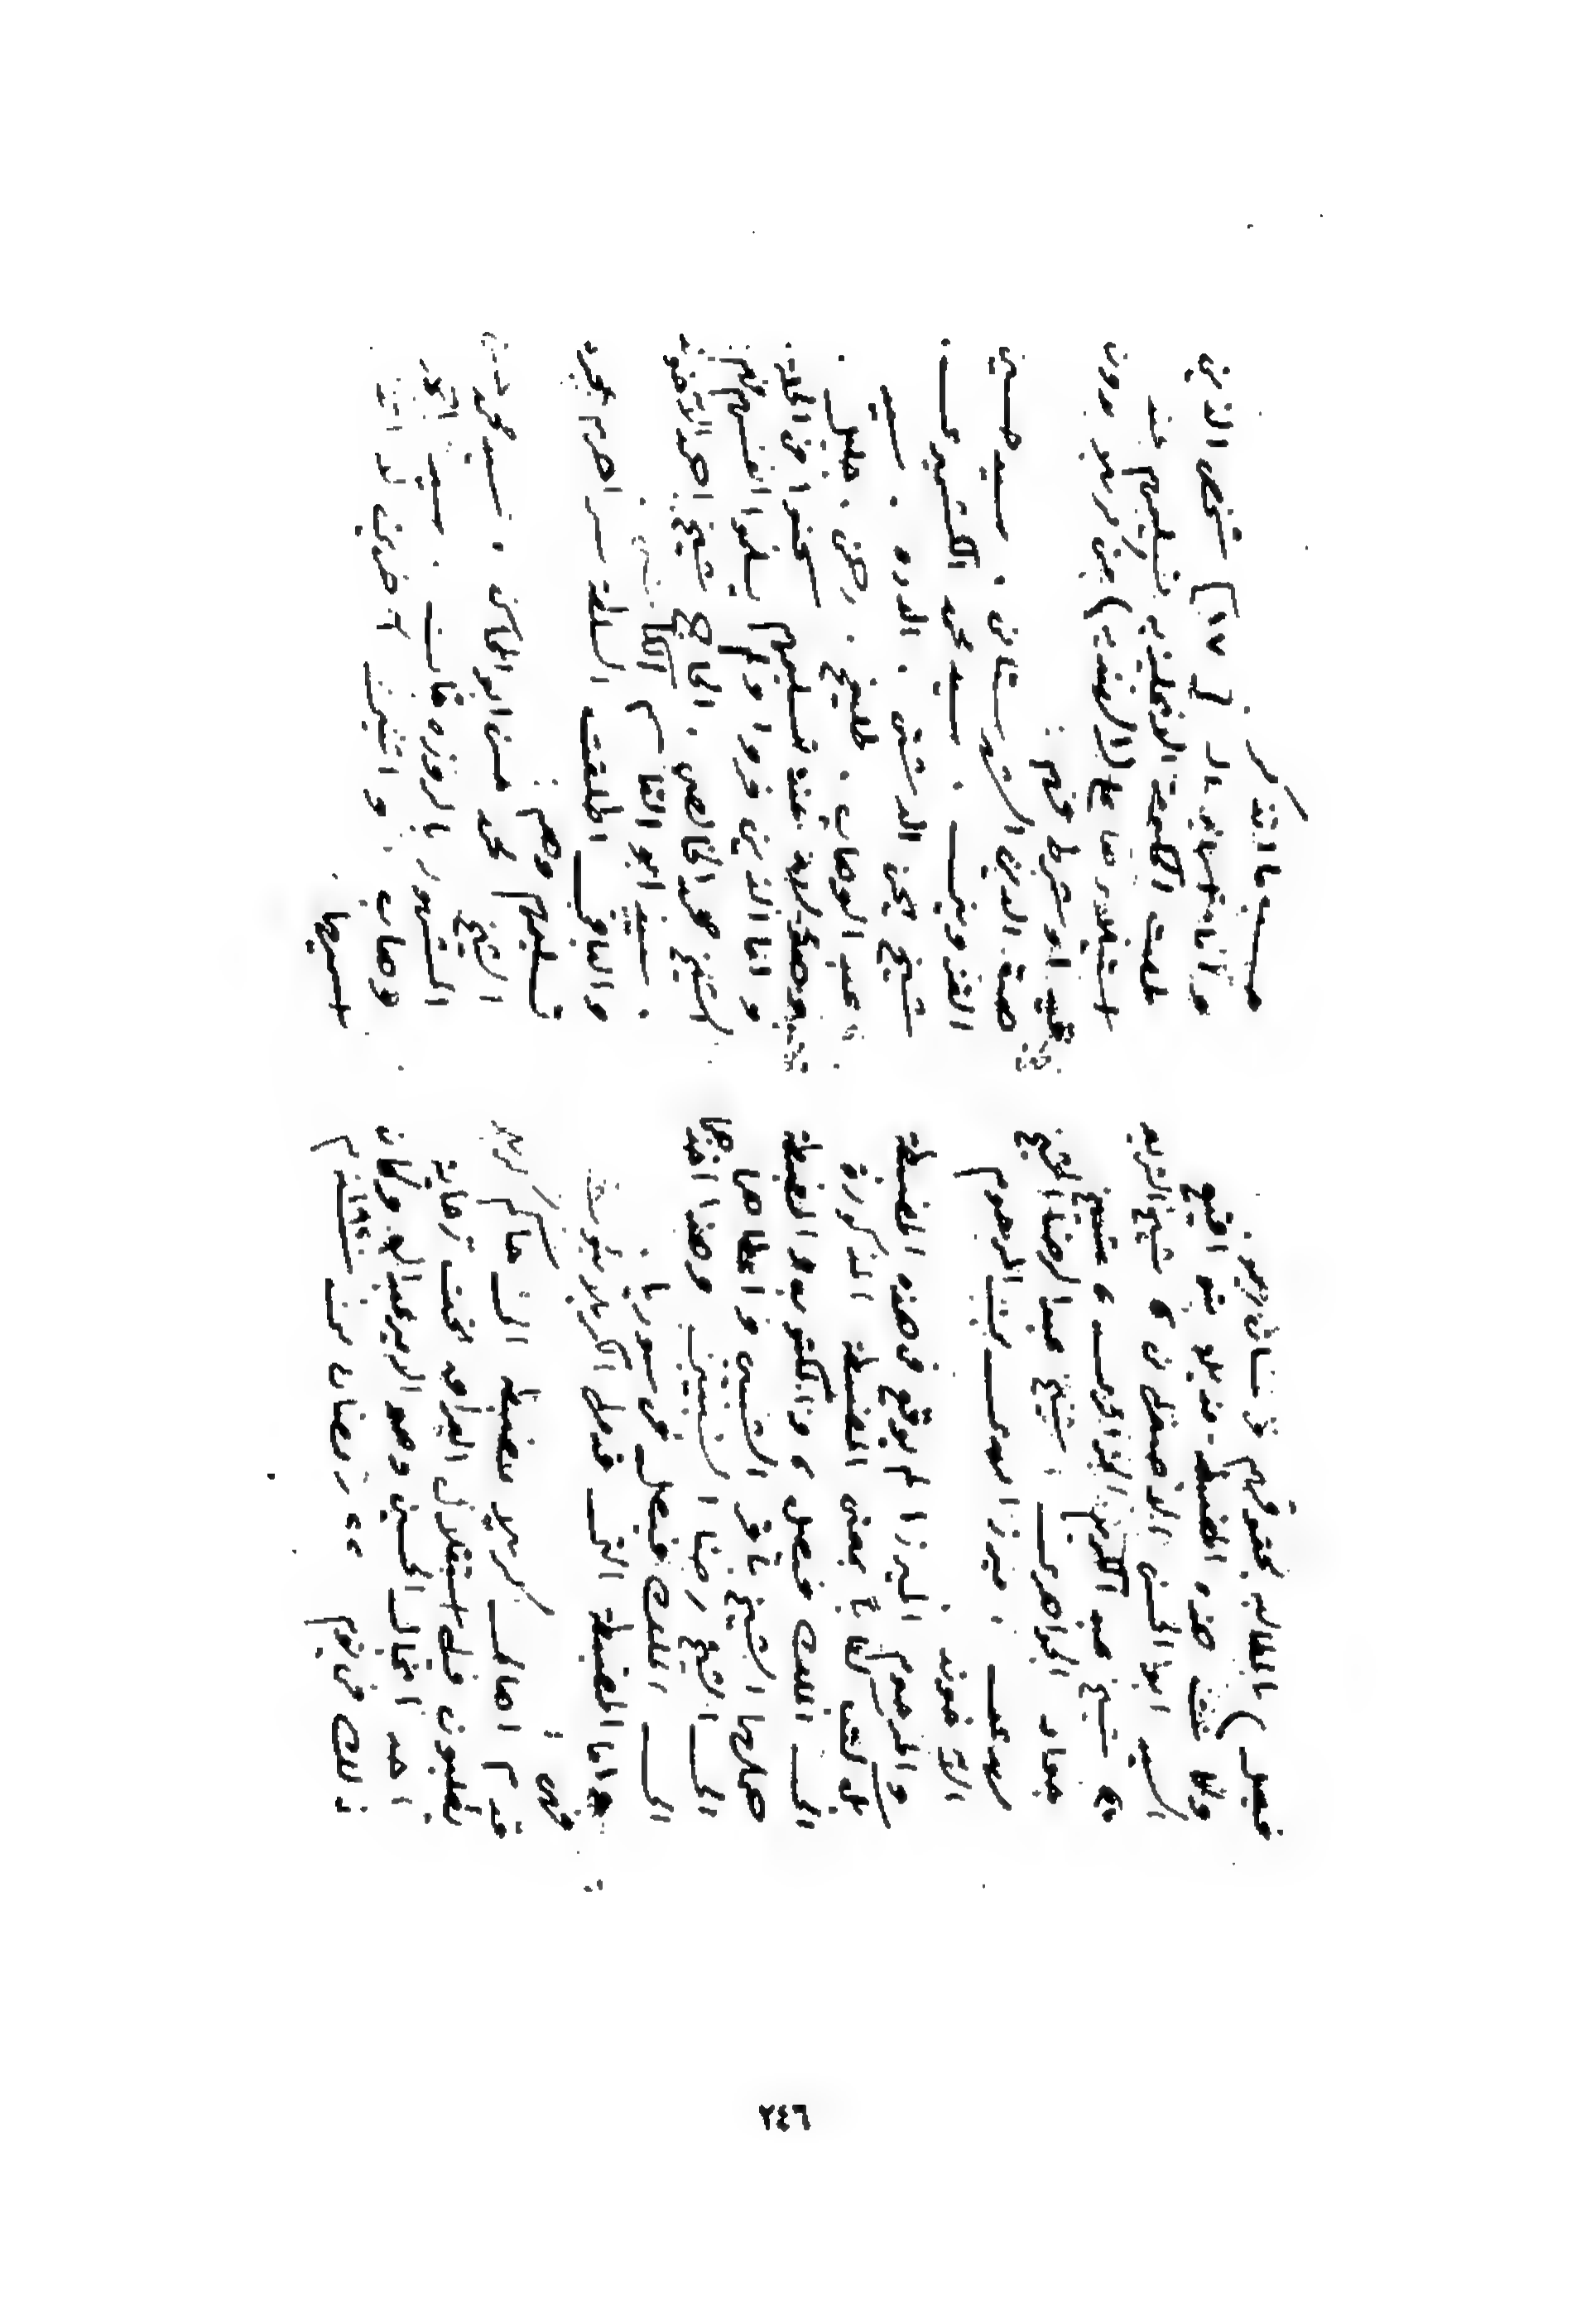 فيصل) بالمطالبه بحقوقهم في
ولما تمت هذه المضبطه - مذيله بتواقيع
السيد ابو الحسن الاصفهاني و شيخ الشريعه
و شيخ عبد الكريم الجزائري و شيخ
جواد الجواهري ، شيخ عبد الرضا الشيخ
مهدي ، ميرزا مهدي بن المرحوم
الآخوند .
والمرحوم الميرزا لم يوقع في هذه المضبطة
بل كتب كتاباً بمعنى المضبطة المذكورة
الى الملك فيصل ، والمكتوب والمضبطة
حملها الشيخ باقر الشبيبي واعطاها
الى الشيخ رضا الشبيبي وهذا اخذها
الى الملك فيصل في سوريا .
واما المضبطة التي قدمها
فهي :
قدم اهالي كربلاء مضبطة الى حاكم كربلاء
يطلبون فيها استقلال العراق تحت رعاية
احد انجال الحسين وهو الامير عبد الله وكان
ذلك في يوم رمضان سنة
حسب ما اتذكر .
وأما نهايه ال [١٧] شخص الذين
طلبت الحكومة الانكليزيه تسليمهم عند
استيلاءها على (الهنديه) من بدون
قيد او شرط فهم :
هبة الدين الشهرستاني . سيد حسين
القزويني . سيد محمد الكشميري .
شيخ محسن الدشتي . الدده . سيد
عبد الوهاب . طليفح . خليل .
وهؤلاء عند تسليمهم سجنوا في الحلة .
و اما الذين فروا ولم يسلموا انفسهم فهم
الشيخ محمد الخالصي . الحاج شيخ احمد الآخوند
. سيد ابو القاسم الكاشاني .
والباقي اطلقت السلطة سراحهم بمجرد
تسليمهم وهم :
الشيخ محمد حسن ابو المحاسن . سيد محمد
المشهور بالروزه خاني . سيد احمد
وهاب . واثنين آخرين لا
اسميهما .
٢٤٦